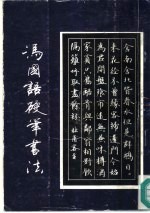 馮國語硬筆書法
舍南舍北皆春水但見群鷗日日
來花徑不曾緣客掃蓬門今始
為君開盤飧市遠無兼味樽酒
家貧只舊醅肯與鄰翁相對飲
隔籬呼取盡餘杯